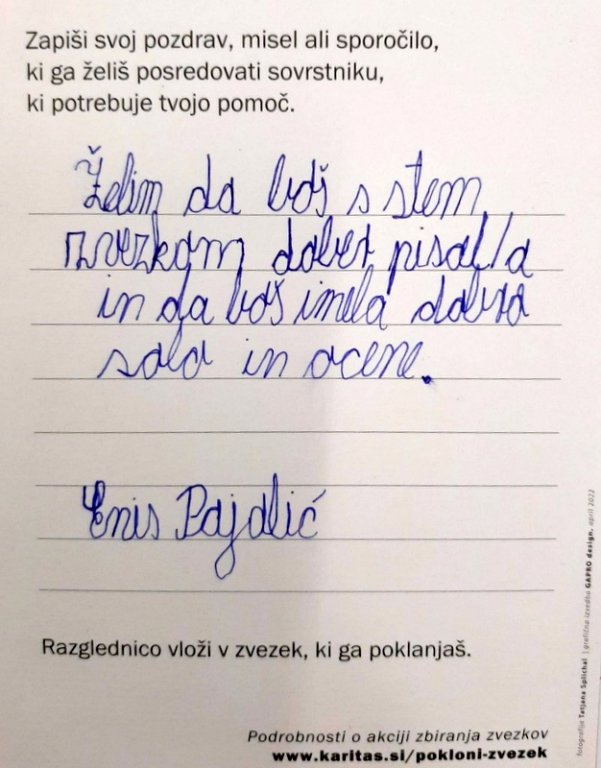 Zapiši svoj pozdrav, misel ali sporočilo,
ki ga želiš posredovati sovrstniku,
ki potrebuje tvojo pomoč.
Želim da boš s stem
zvezkam dober pisal/a
in da boš imela dobra
sola in ocene.
Enis Pajalić
Razglednico vloži v zvezek, ki ga poklanjaš.
Podrobnosti o akciji zbiranja zvezkov
www.karitas.si/pokloni-zvezek
fotografije Tatjana Splichal | grafična izvedba GAPRO design, april 2022